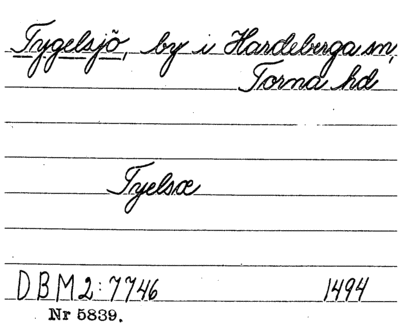 Tygelsjö, by i Hardeberga sn,
Torna hd
Tyelsæ
DBM2:7746 1494
Nr 5839.